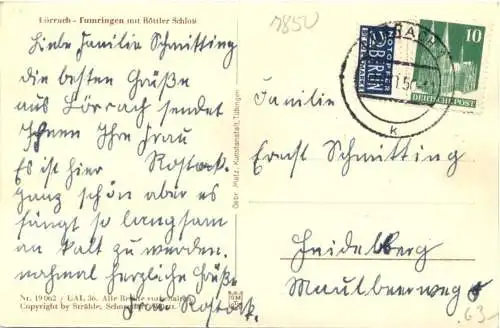 Lörrach - Tumringen mit Röttler Schloß
7850
Liebe Familie Schmitting
die besten Grüße
aus Lörrach sendet
Ihnen Ihre Frau
Rostock.
Es ist hier
ganz schön aber es
fängt so langsam
an kalt zu werden.
nochmal herzliche Grüße
Frau Rostock.
Nr. 19062 / GAL 36. Alte Brücke
Copyright by Strähle,
Gebr. Metz, Kunstanstalt, Tübingen
NOTOPFER
2 BERLIN
STEUERMARKE
10
DEUTSCHE POST
k
Familie
Ernst Schmitting
Heidelberg
Maulbeerweg
63-